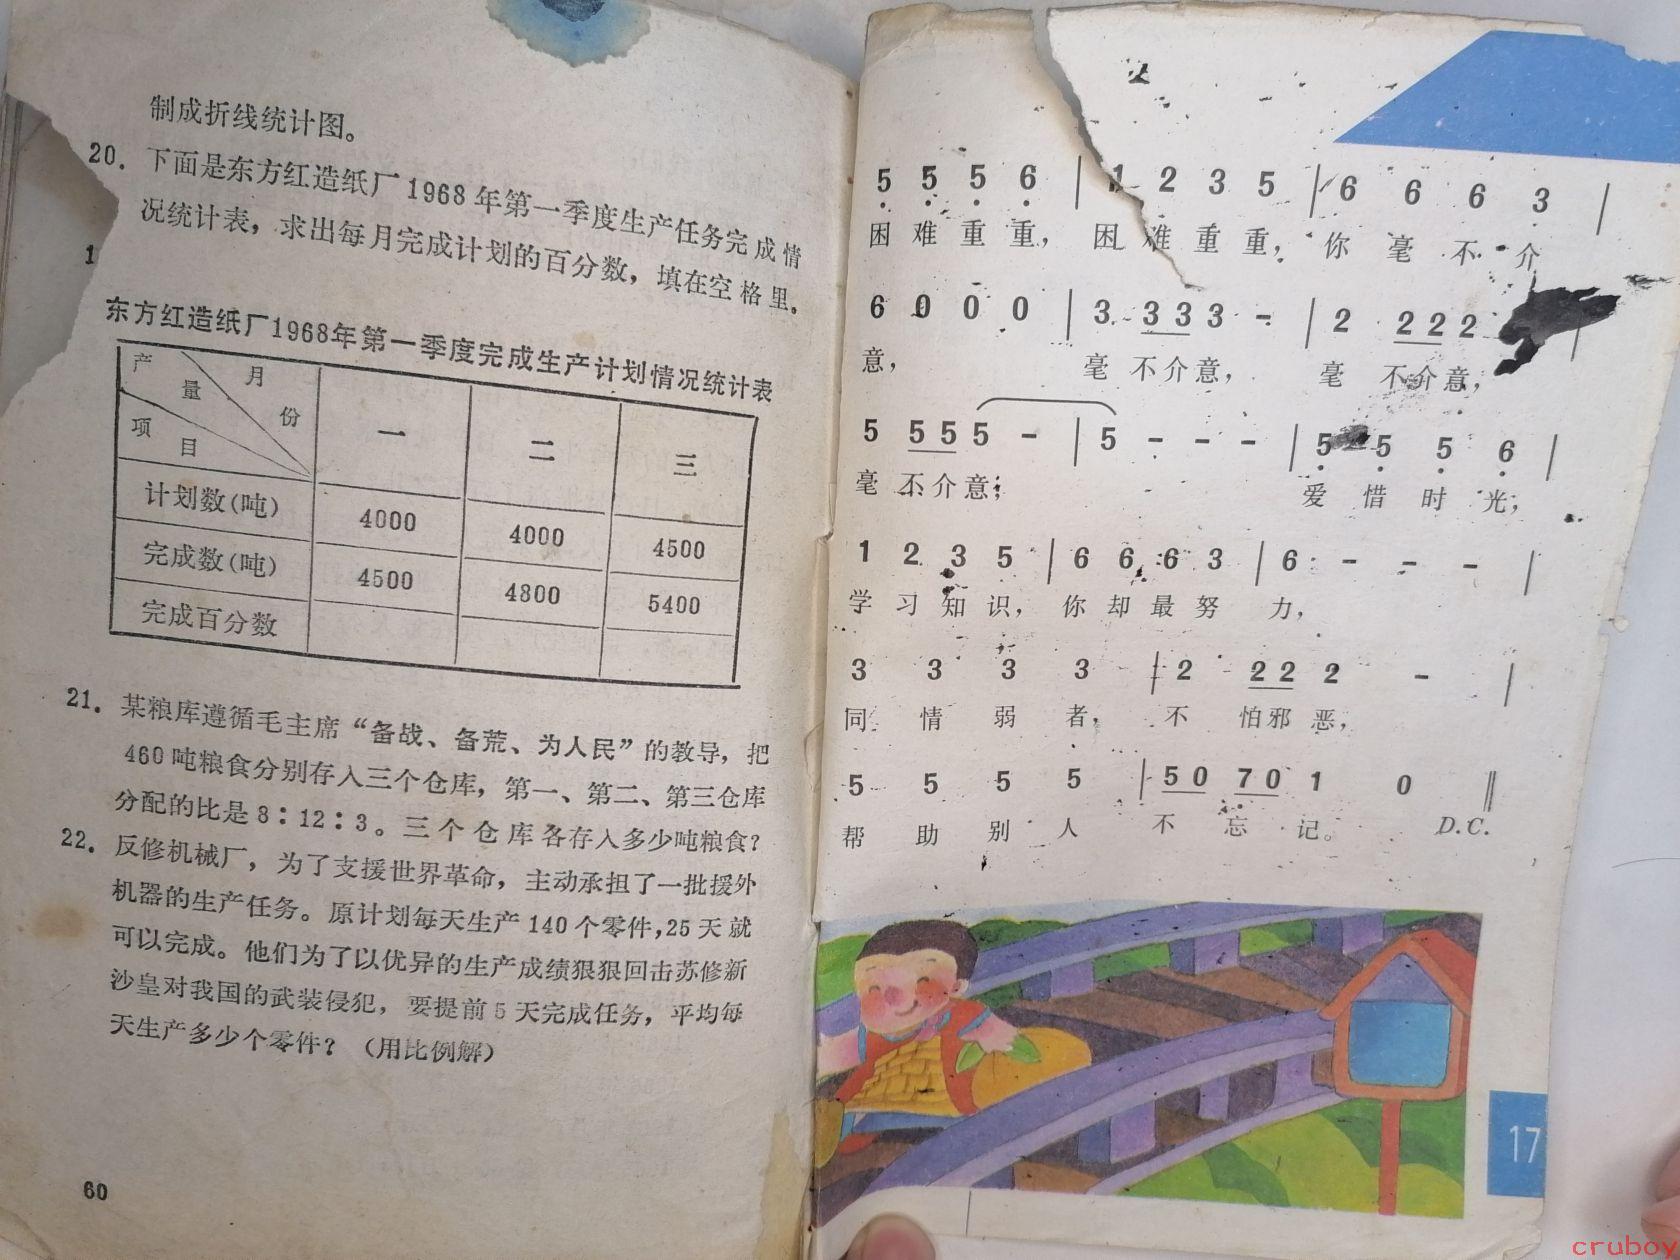 制成折线统计图。
20. 下面是东方红造纸厂1968年第一季度生产任务完成情
况统计表，求出每月完成计划的百分数，填在空格里。
东方红造纸厂1968年第一季度完成生产计划情况统计表
产量 月份 项目 一 二 三
计划数(吨) 4000 4000 4500
完成数(吨) 4500 4800 5400
完成百分数
21. 某粮库遵循毛主席“备战、备荒、为人民”的教导，把
460吨粮食分别存入三个仓库，第一、第二、第三仓库
分配的比是8∶12∶3。三个仓库各存入多少吨粮食？
22. 反修机械厂，为了支援世界革命，主动承担了一批援外
机器的生产任务。原计划每天生产140个零件，25天就
可以完成。他们为了以优异的生产成绩狠狠回击苏修新
沙皇对我国的武装侵犯，要提前5天完成任务，平均每
天生产多少个零件？（用比例解）
60
5 5 5 6 | 1 2 3 5 | 6 6 6 3 |
困难重重，困难重重，你毫不介
6 0 0 0 | 3 3 3 3 - | 2 2 2 2
意，毫不介意，毫不介意，
5 5 5 5 - | 5 - - - | 5 5 5 6 |
毫不介意；爱惜时光；
1 2 3 5 | 6 6 6 3 | 6 - - - |
学习知识，你却最努力，
3 3 3 3 | 2 2 2 2 - |
同情弱者，不怕邪恶，
5 5 5 5 | 5 0 7 0 1 0 ‖
帮助别人不忘记。 D.C.
17
cruboy